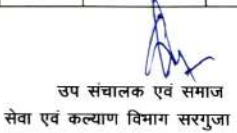 उप संचालक एवं समाज
सेवा एवं कल्याण विमाग सरगुजा